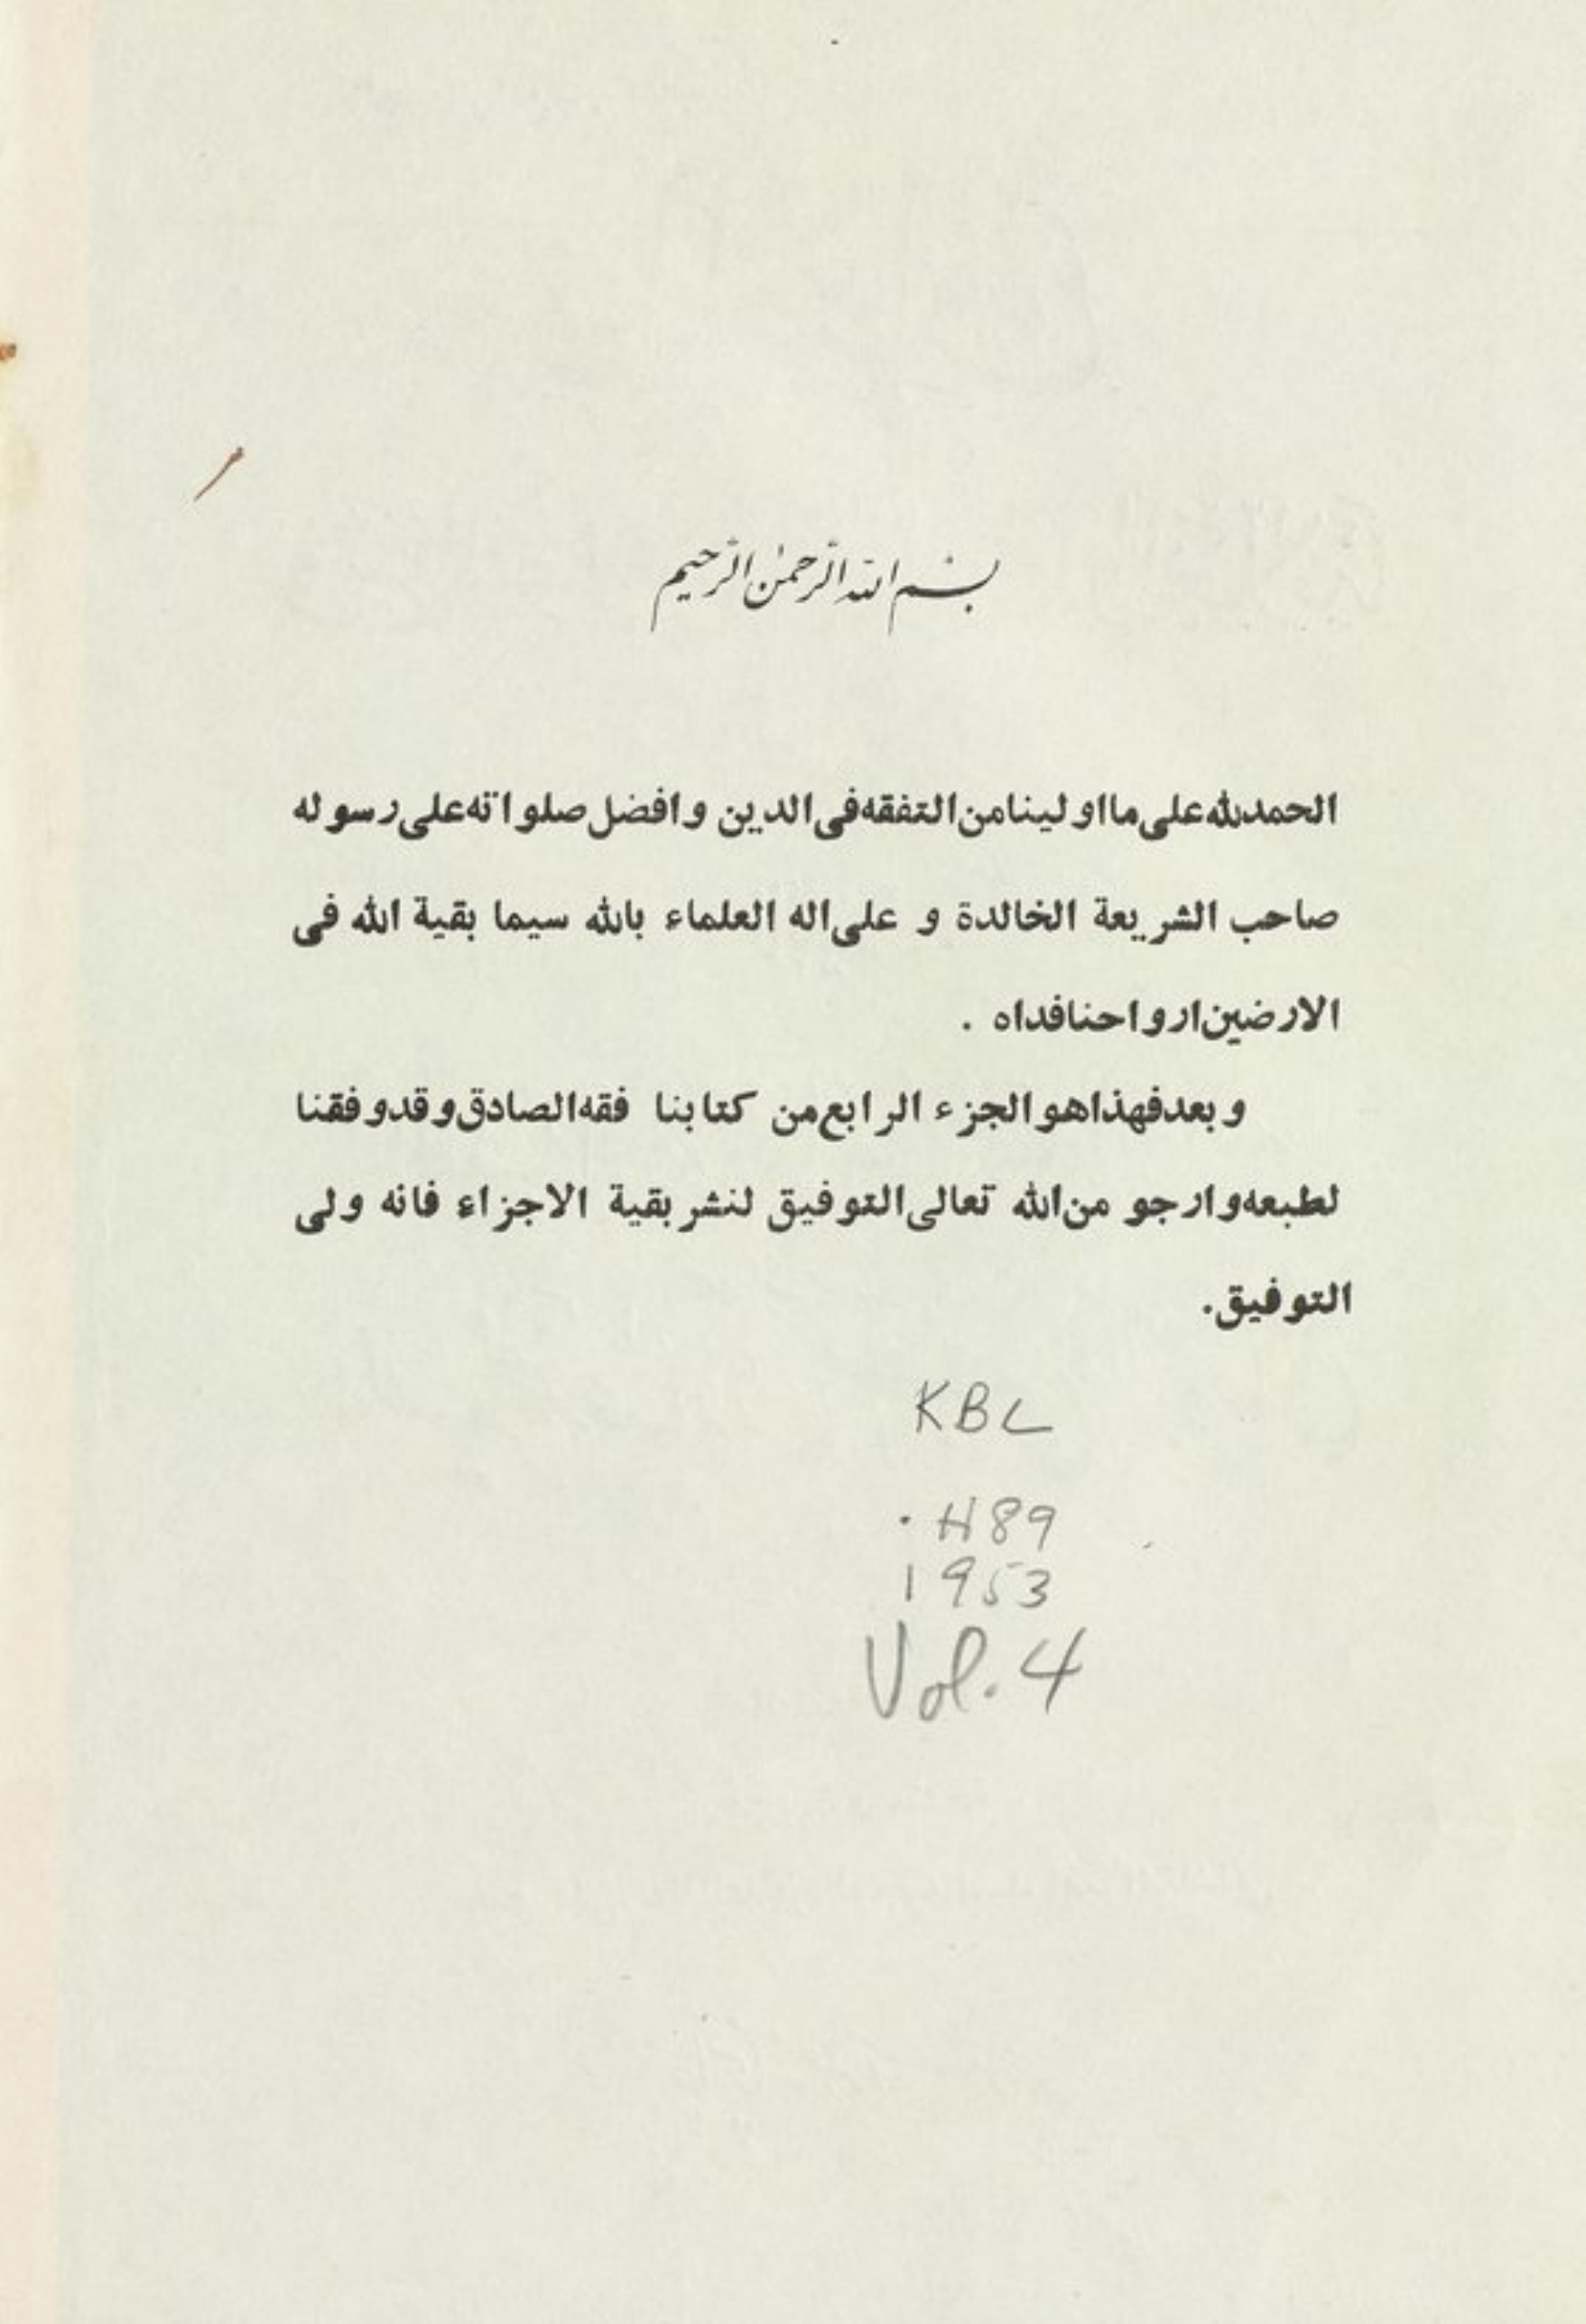 بسم الله الرحمن الرحيم
الحمدلله على ما اولينا من التفقه فى الدين وافضل صلواته على رسوله
صاحب الشريعة الخالدة و على اله العلماء بالله سيما بقية الله فى
الارضين ارواحنافداه .
وبعد فهذا هو الجزء الرابع من كتابنا فقه الصادق وقد وفقنا
لطبعه وارجو من الله تعالى التوفيق لنشر بقية الاجزاء فانه ولى
التوفيق.
KBL
.H89
1953
Vol. 4